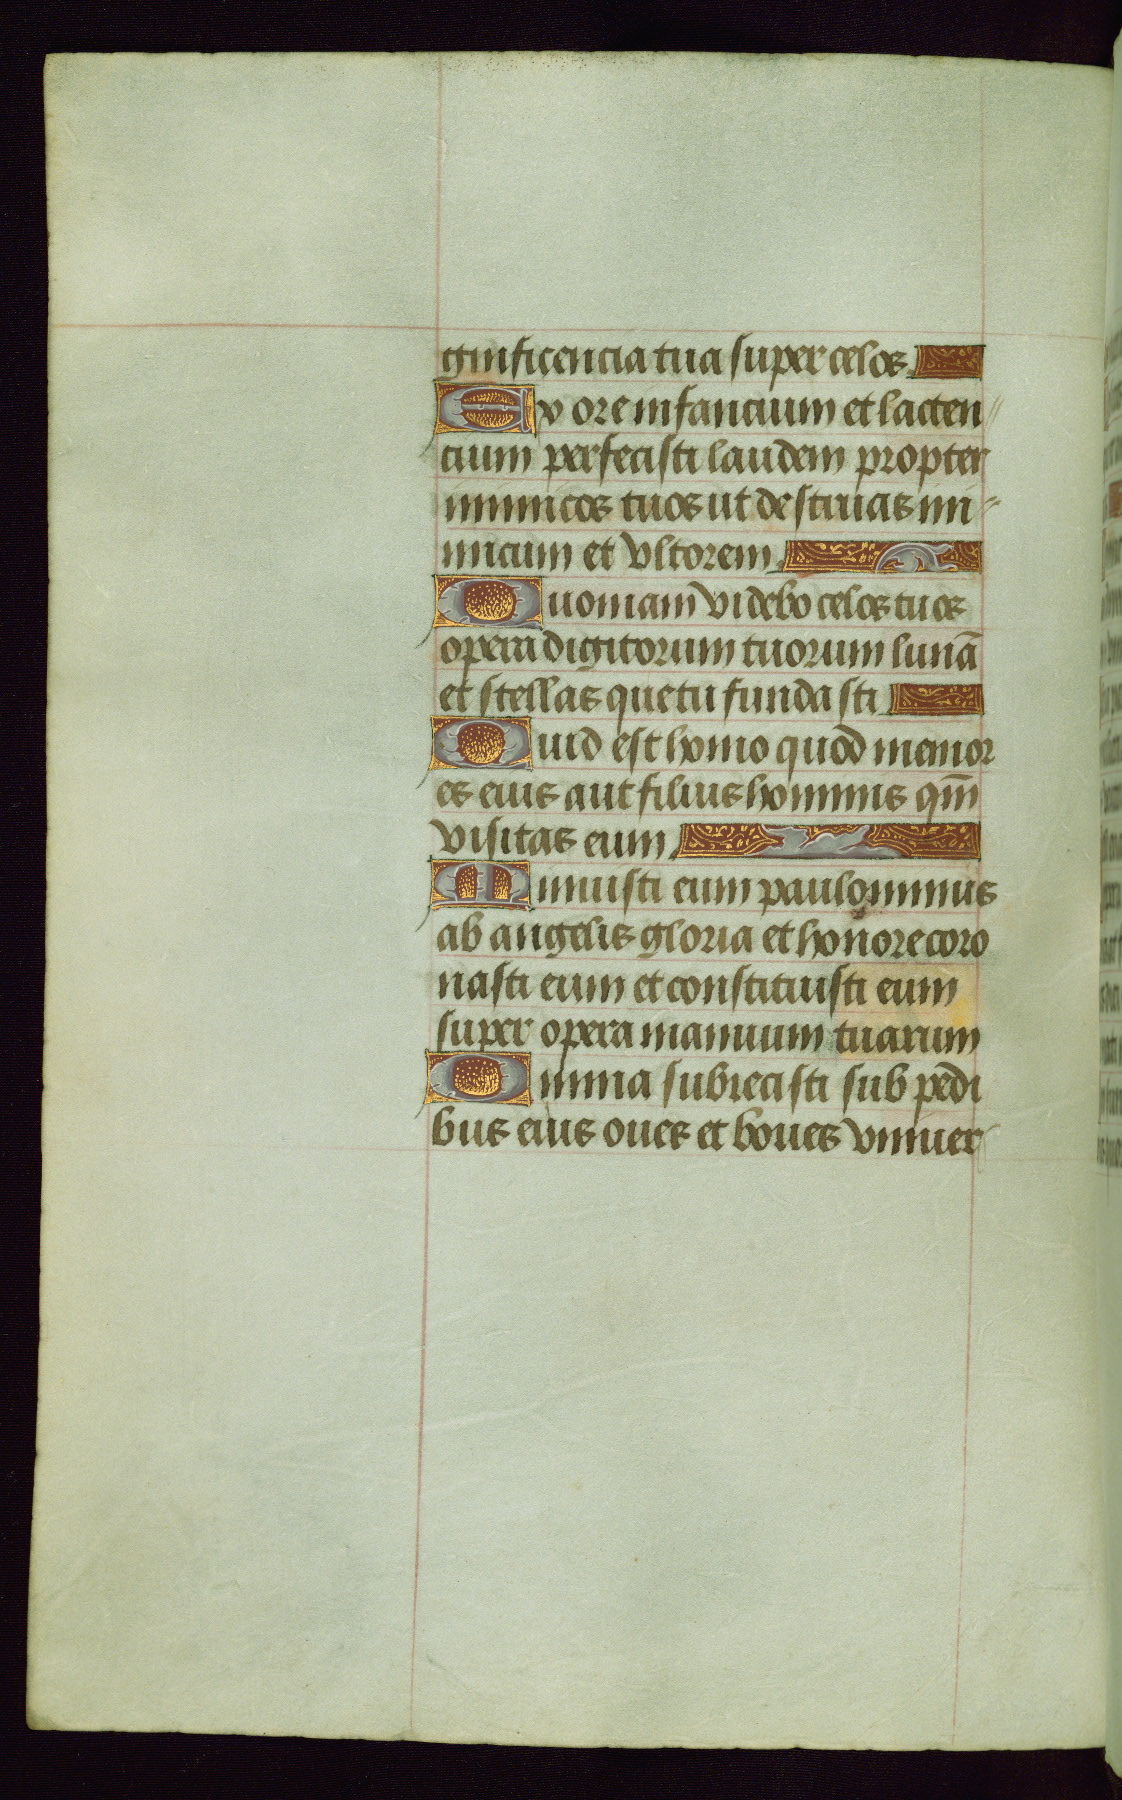 gnificencia tua super celos
Ex ore infancium et lacten
cium perfecisti laudem propter
inimicos tuos ut destruas ini
micum et vltorem
Quoniam videbo celos tuos
opera digitorum tuorum lunā
et stellas que tu fundasti
Quid est homo quod memor
es eius aut filius hominis qm̄
visitas eum
Minuisti eum paulominus
ab angelis gloria et honore coro
nasti eum et constituisti eum
super opera manuum tuarum
Omnia subiecisti sub pedi
bus eius oues et boues vniuer